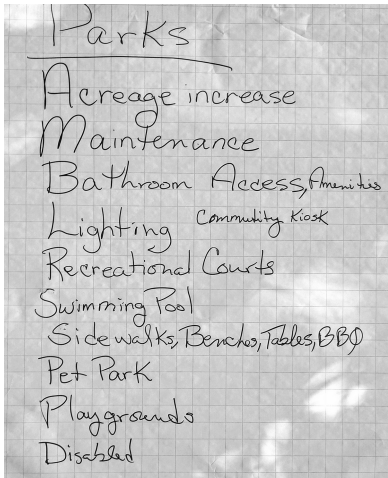 Parks
Acreage increase
Maintenance
Bathroom Access, Amenities
Lighting Community Kiosk
Recreational Courts
Swimming Pool
Sidewalks, Benches, Tables, BBQ
Pet Park
Playgrounds
Disabled